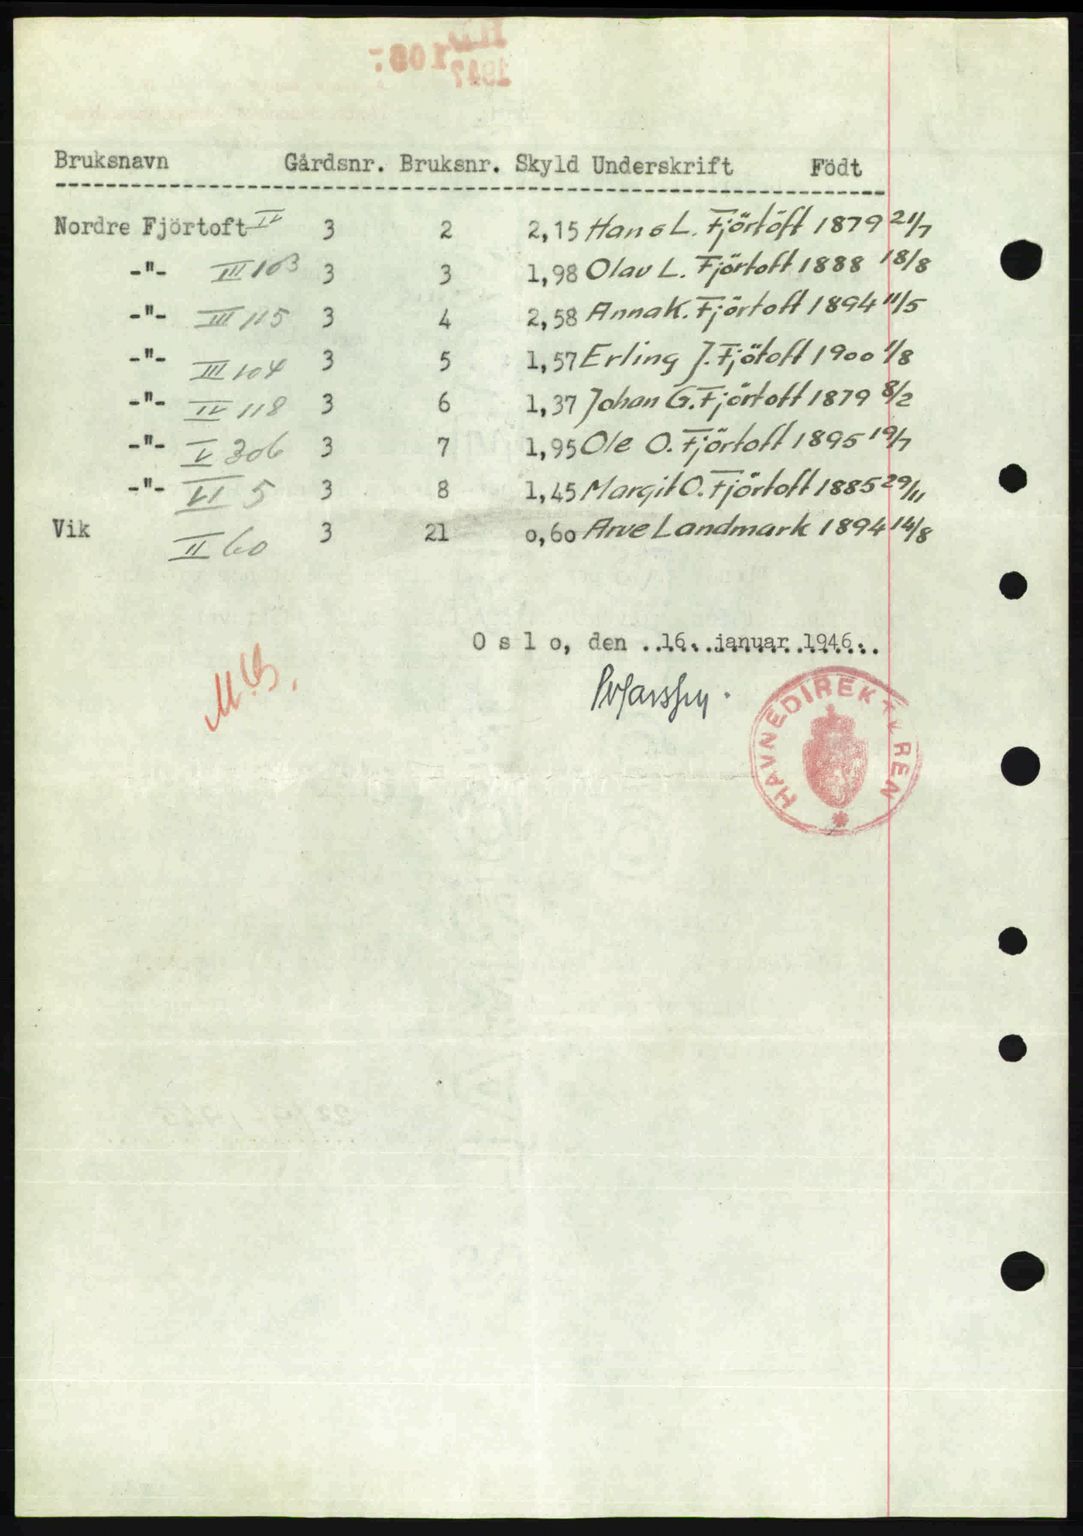 Bruksnavn Gårdsnr. Bruksnr. Skyld Underskrift Födt
Nordre Fjörtoft IV 3 2 2,15 Hans L. Fjörtöft 1879 21/7
-"- III 103 3 3 1,98 Olav L. Fjörtoft 1888 18/8
-"- III 115 3 4 2,58 Anna K. Fjörtoft 1894 11/5
-"- III 104 3 5 1,57 Erling J. Fjötoft 1900 1/8
-"- IV 118 3 6 1,37 Johan G. Fjörtoft 1879 8/2
-"- V 306 3 7 1,95 Ole O. Fjörtoft 1895 19/7
-"- VI 5 3 8 1,45 Margit O. Fjörtoft 1885 29/11
Vik II 60 3 21 0,60 Arve Landmark 1894 14/8
O s l o, den ..16. januar 1946...
M.B.
HAVNEDIREKTØREN